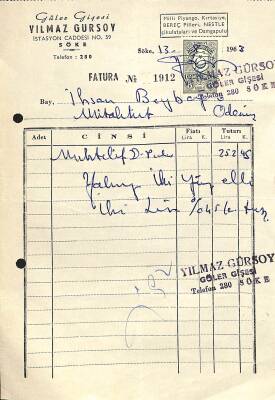 Güler Gişesi
YILMAZ GÜRSOY
İSTASYON CADDESİ NO. 59
SÖKE
Telefon : 280
Milli Piyango, Kırtasiye,
BEREÇ Pilleri, NESTLE
Çikolataları ve Damgapulu
Söke, 13 1963
FATURA № 1912
YILMAZ GÜRSOY
GÜLER GİŞESİ
Telefon 280 SÖKE
Bay, İhsan
Müteahhit Ödemiş
Adet CİNSİ Fiatı Tutarı
Lira K. Lira K.
Muhtelif D. Pulu 252 45
Yalnız İki Yüz elli
İki Lira
YILMAZ GÜRSOY
GÜLER GİŞESİ
Telefon 280 SÖKE